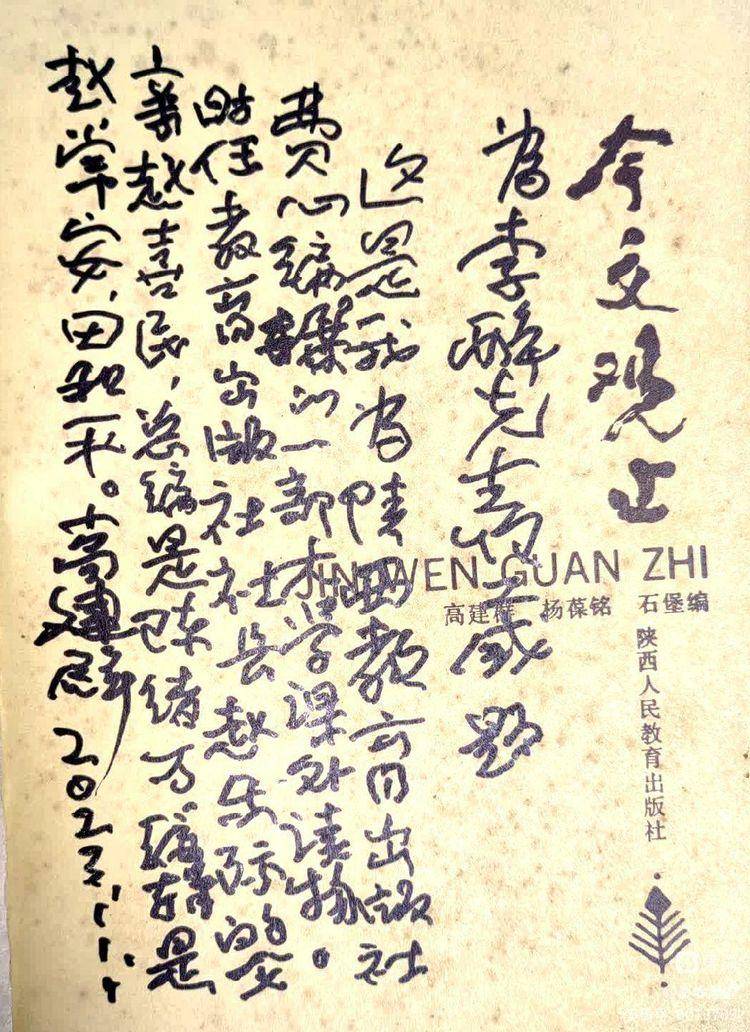 今文观止
JIN WEN GUAN ZHI
高建群 杨葆铭 石堡编
陕西人民教育出版社
为李醉先生题
这是我为陕西教育出版社
费心编撰的一部学课外读物。
时任教育出版社社长赵乐际的父
亲赵喜民，总编是陈绪万，编辑是
赵常安，田和平。高建群 2023.11.1